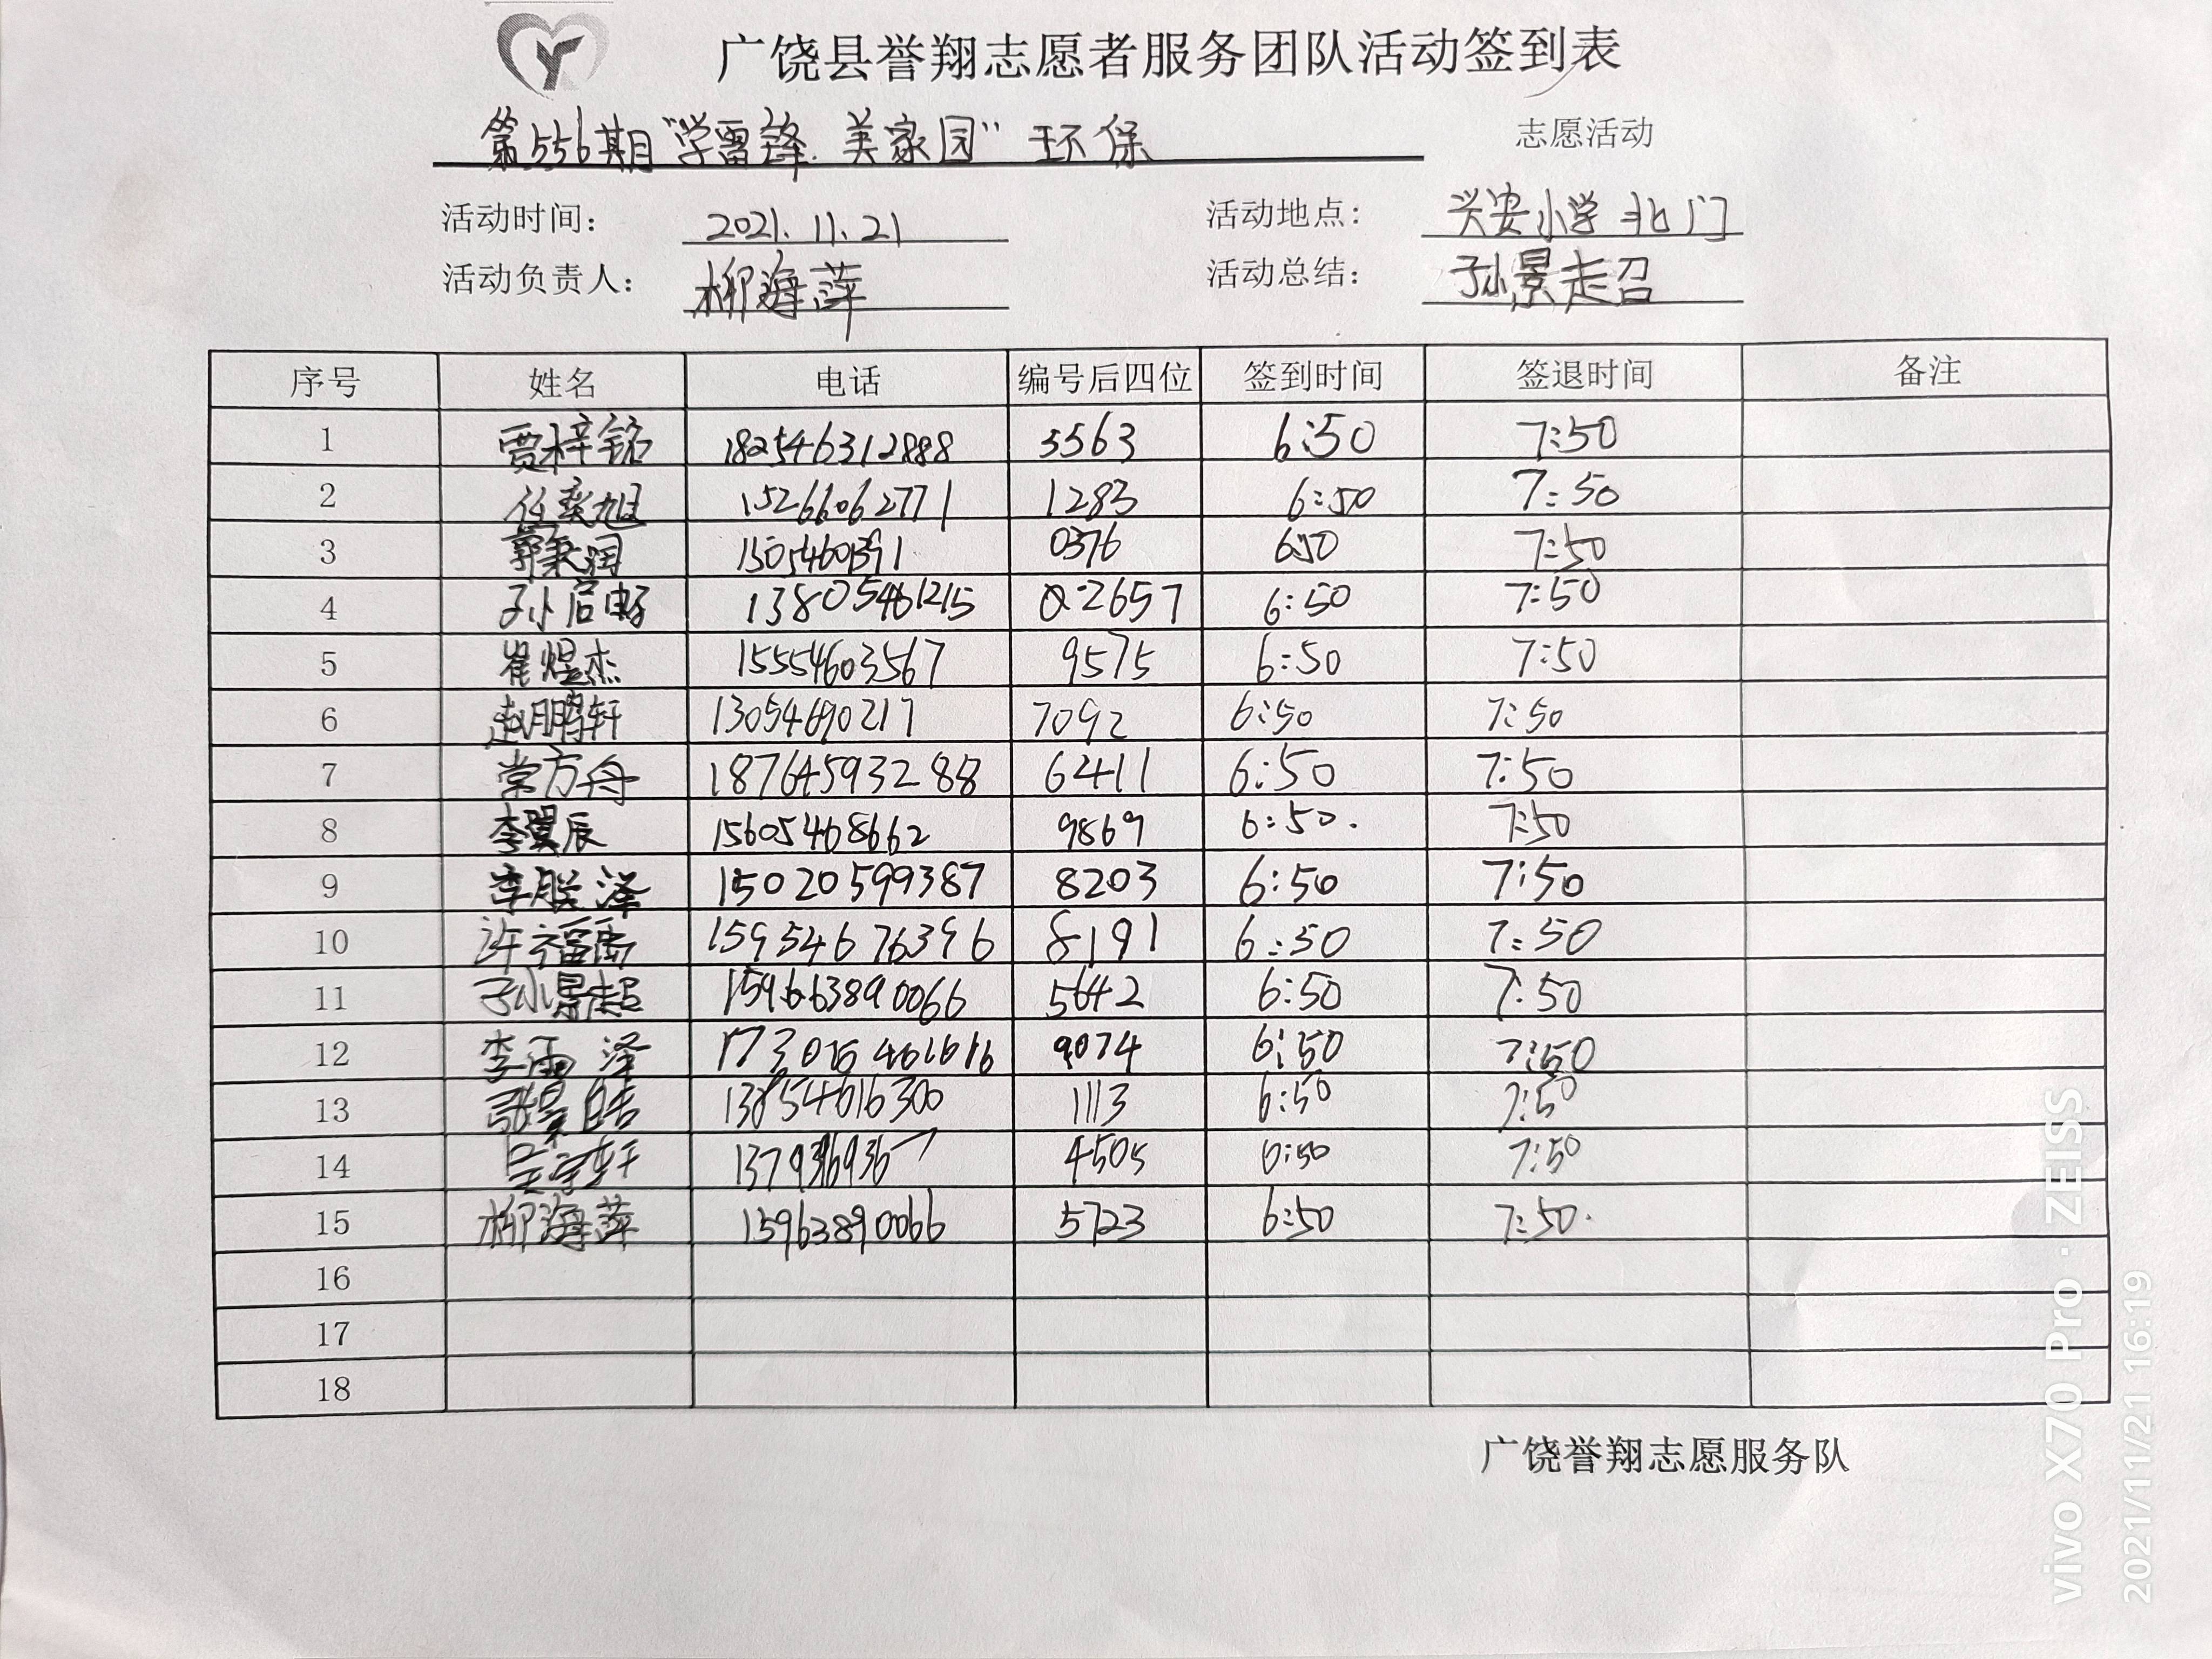 广饶县誉翔志愿者服务团队活动签到表
第556期"学雷锋.美家园"环保 志愿活动
活动时间: 2021.11.21 活动地点: 兴安小学北门
活动负责人: 柳海萍 活动总结: 孙景超
序号 姓名 电话 编号后四位 签到时间 签退时间 备注
1 贾梓铭 182546312888 5563 6:50 7:50
2 任奕旭 15266062771 1283 6:50 7:50
3 郭秉润 0376 650 7:50
4 孙启畅 13805461215 2657 6:50 7:50
5 崔煜杰 15554603567 9575 6:50 7:50
6 赵鹏轩 13054690217 7092 6:50 7:50
7 常方舟 18764593288 6411 6:50 7:50
8 李翼辰 15605468662 9869 6:50. 7:50
9 李朕泽 15020599387 8203 6:50 7:50
10 许福禹 15954676396 8191 6:50 7:50
11 孙景超 5642 6:50 7:50
12 李雨泽 9074 6:50 7:50
13 张昊皓 13854616300 1113 6:50 7:50
14 吴宇轩 4505 6:50 7:50
15 柳海萍 15963890066 5723 6:50 7:50.
16
17
18
广饶誉翔志愿服务队
vivo X70 Pro · ZEISS
2021/11/21 16:19